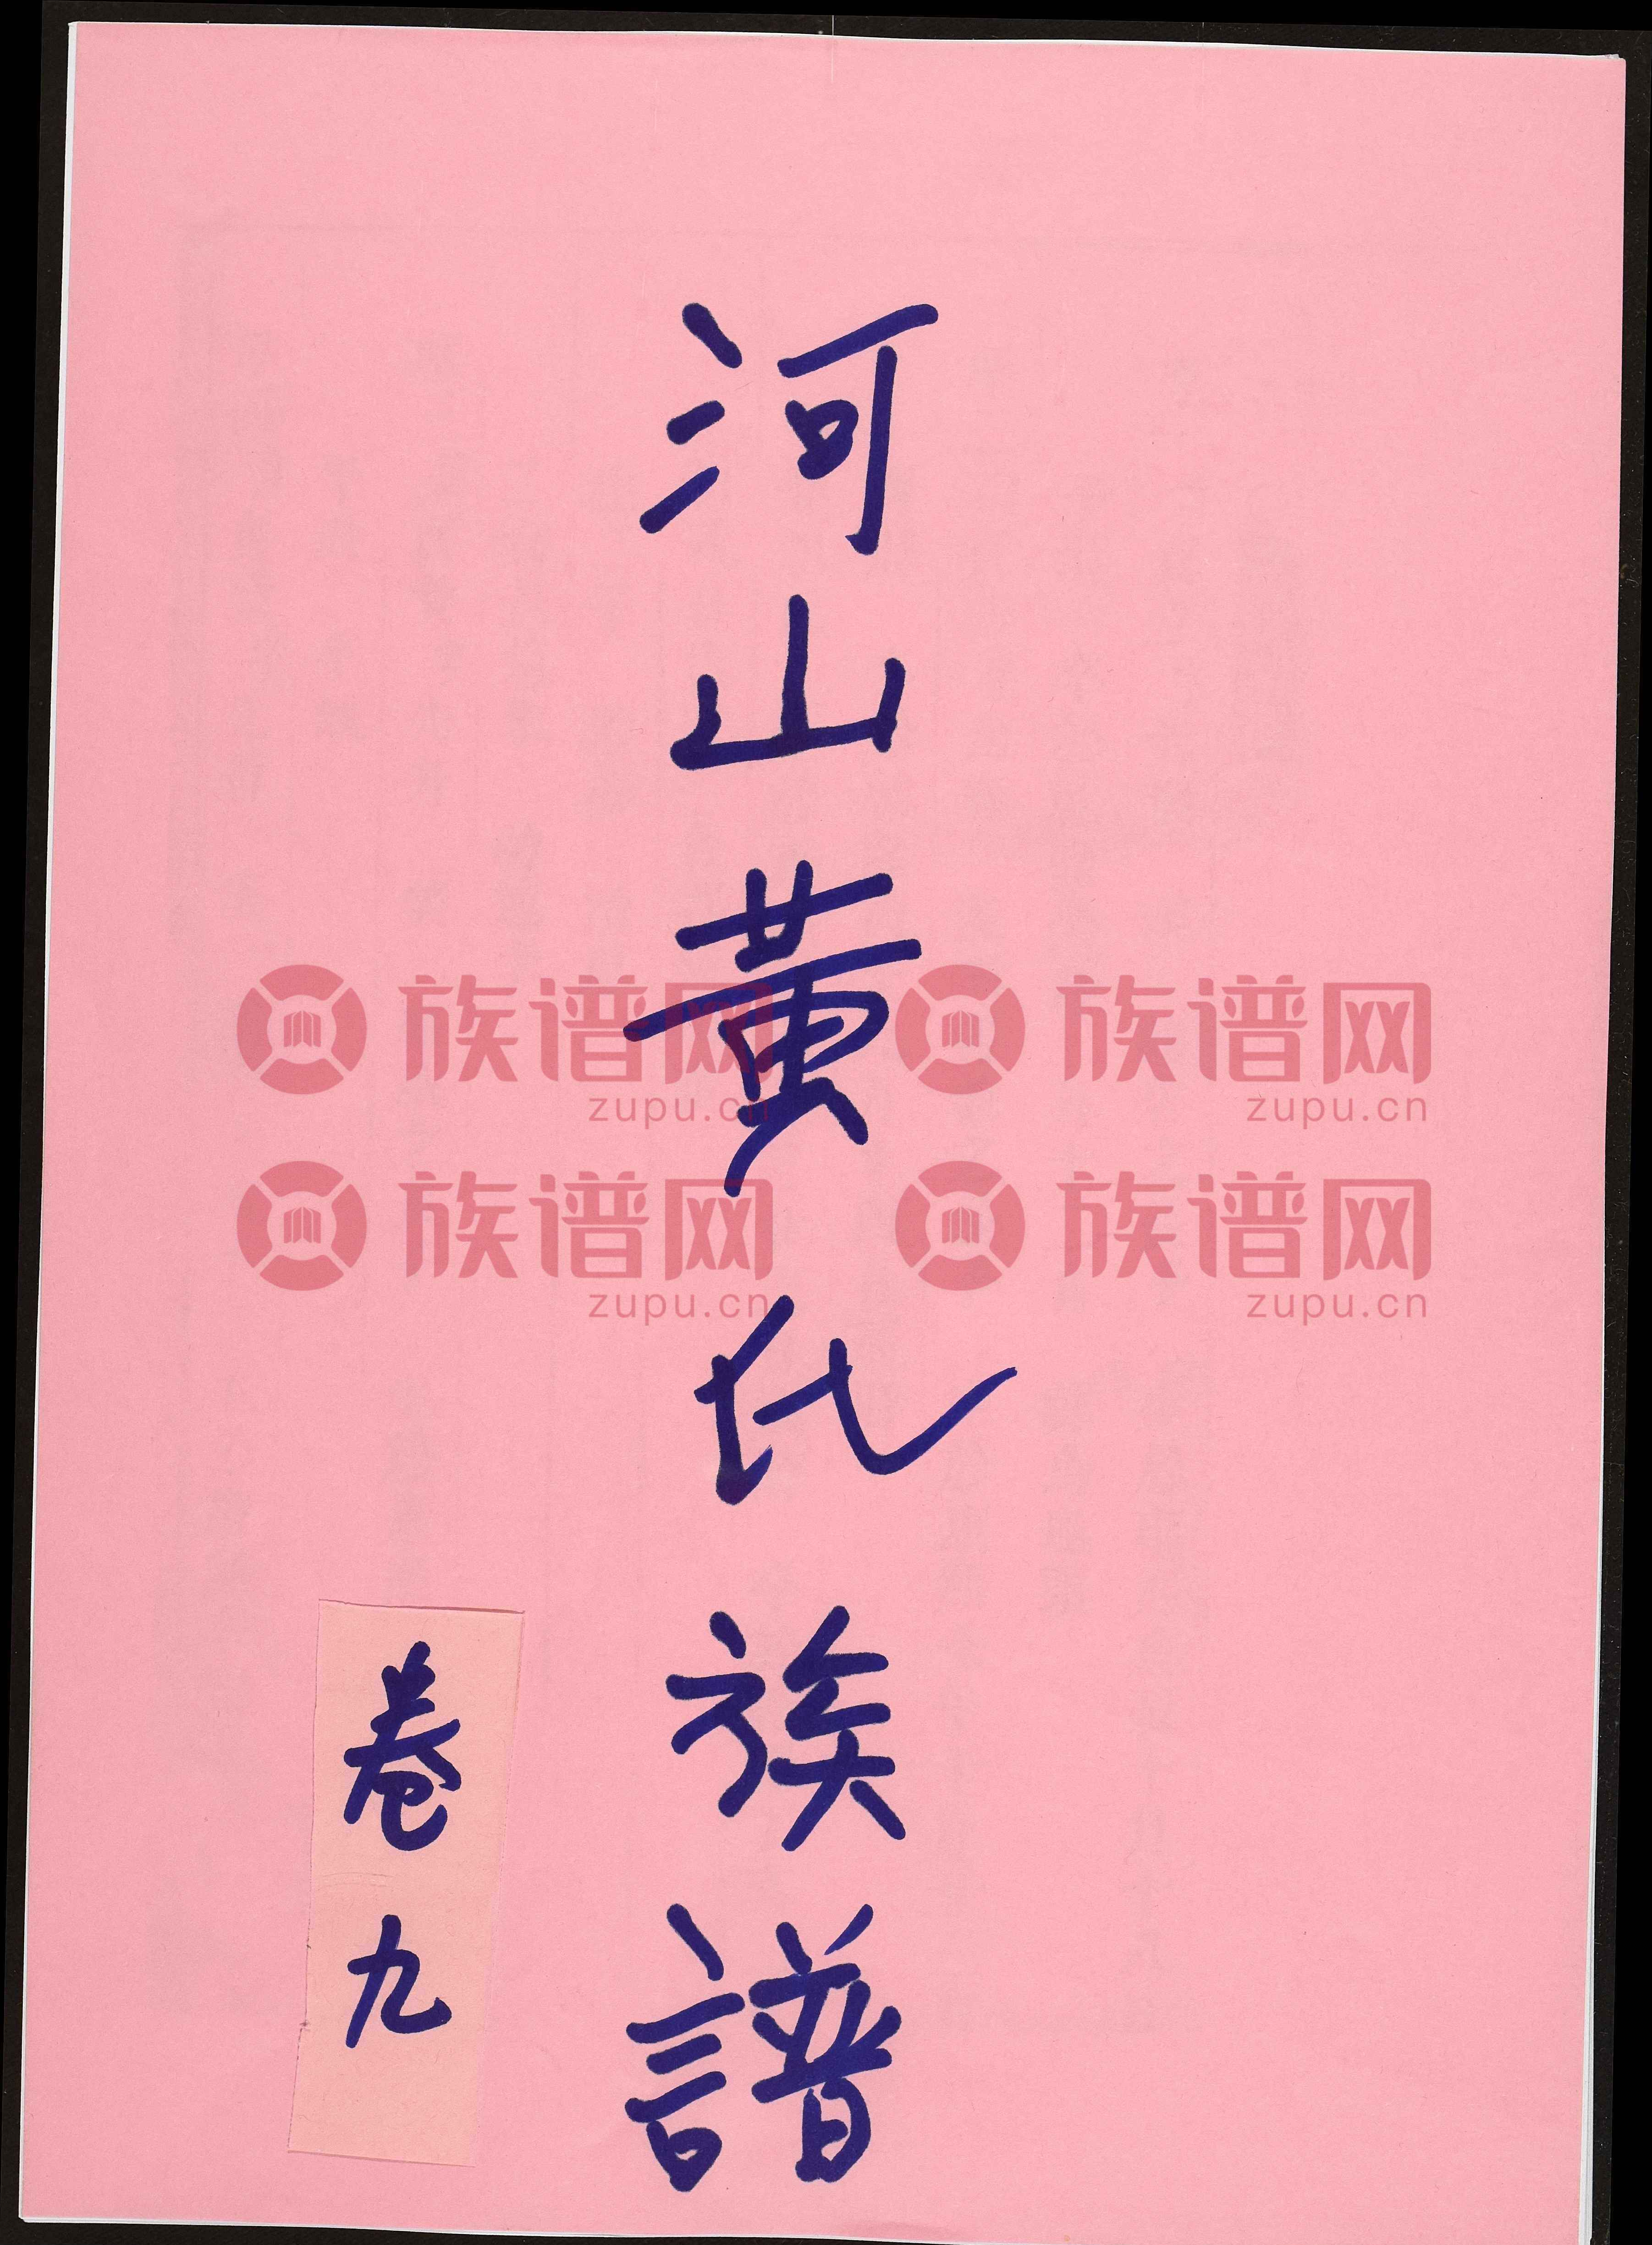 河山黃氏族譜
卷九
族谱网 族谱网
zupu.cn zupu.cn
族谱网 族谱网
zupu.cn zupu.cn